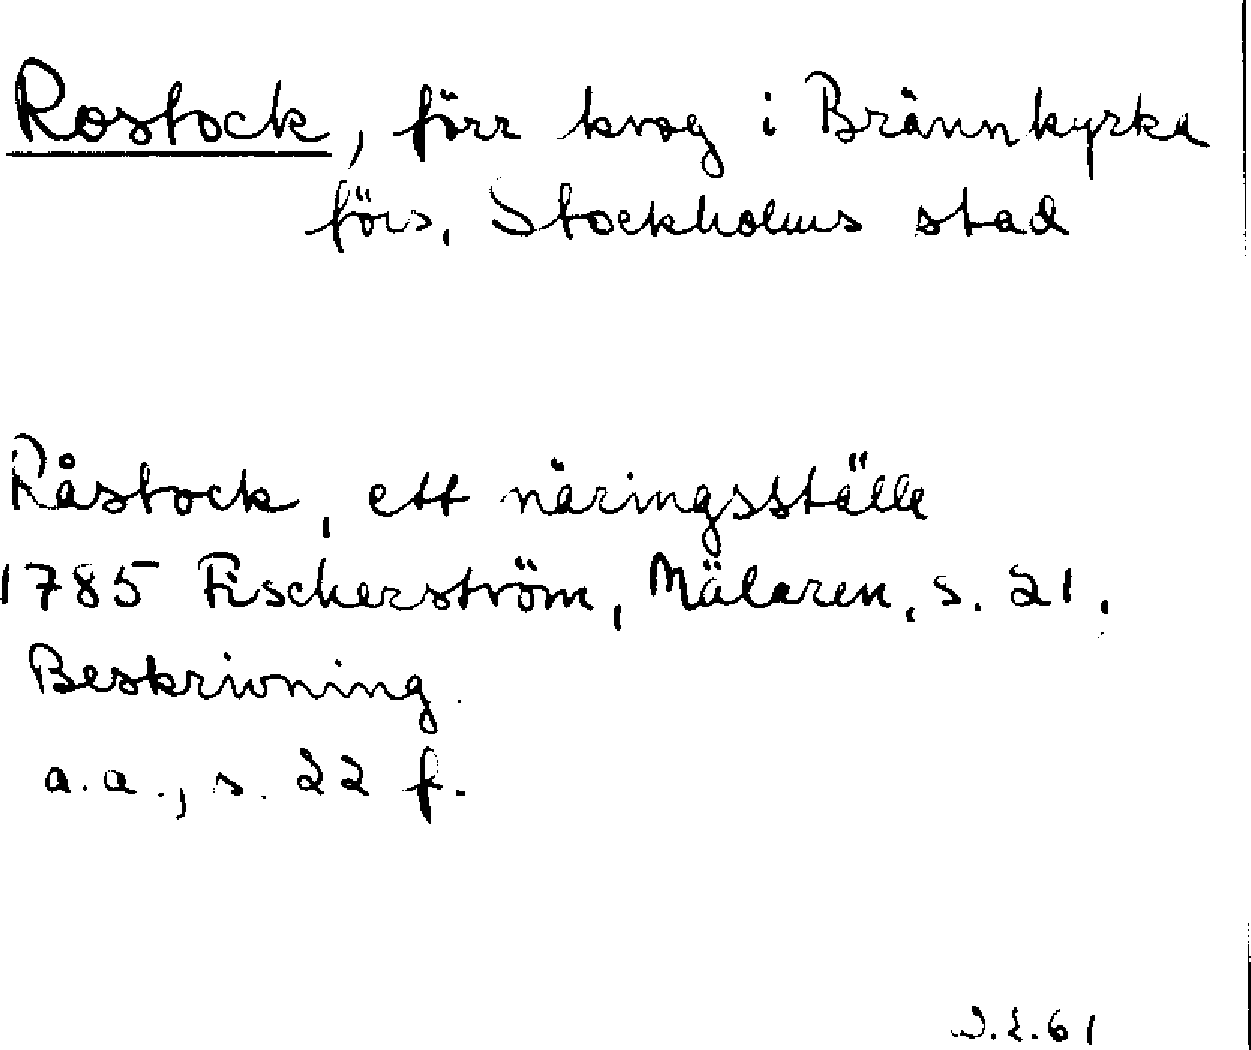 Rostock, förr krog i Brännkyrka
förs, Stockholms stad
Råstock, ett näringsställe
1785 Fischerström, Mälaren, s. 21.
Beskrivning.
a.a., s. 22 f.